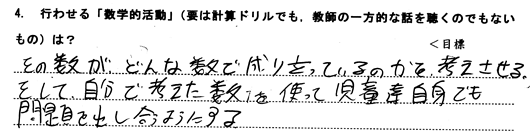 4. 行わせる「数学的活動」(要は計算ドリルでも、教師の一方的な話を聴くのでもない
もの)は?
<目標
その数が、どんな数で成り立っているのかを、考えさせる。
そして、自分で考えた数を使って児童達自身でも
問題を出し合うようにする